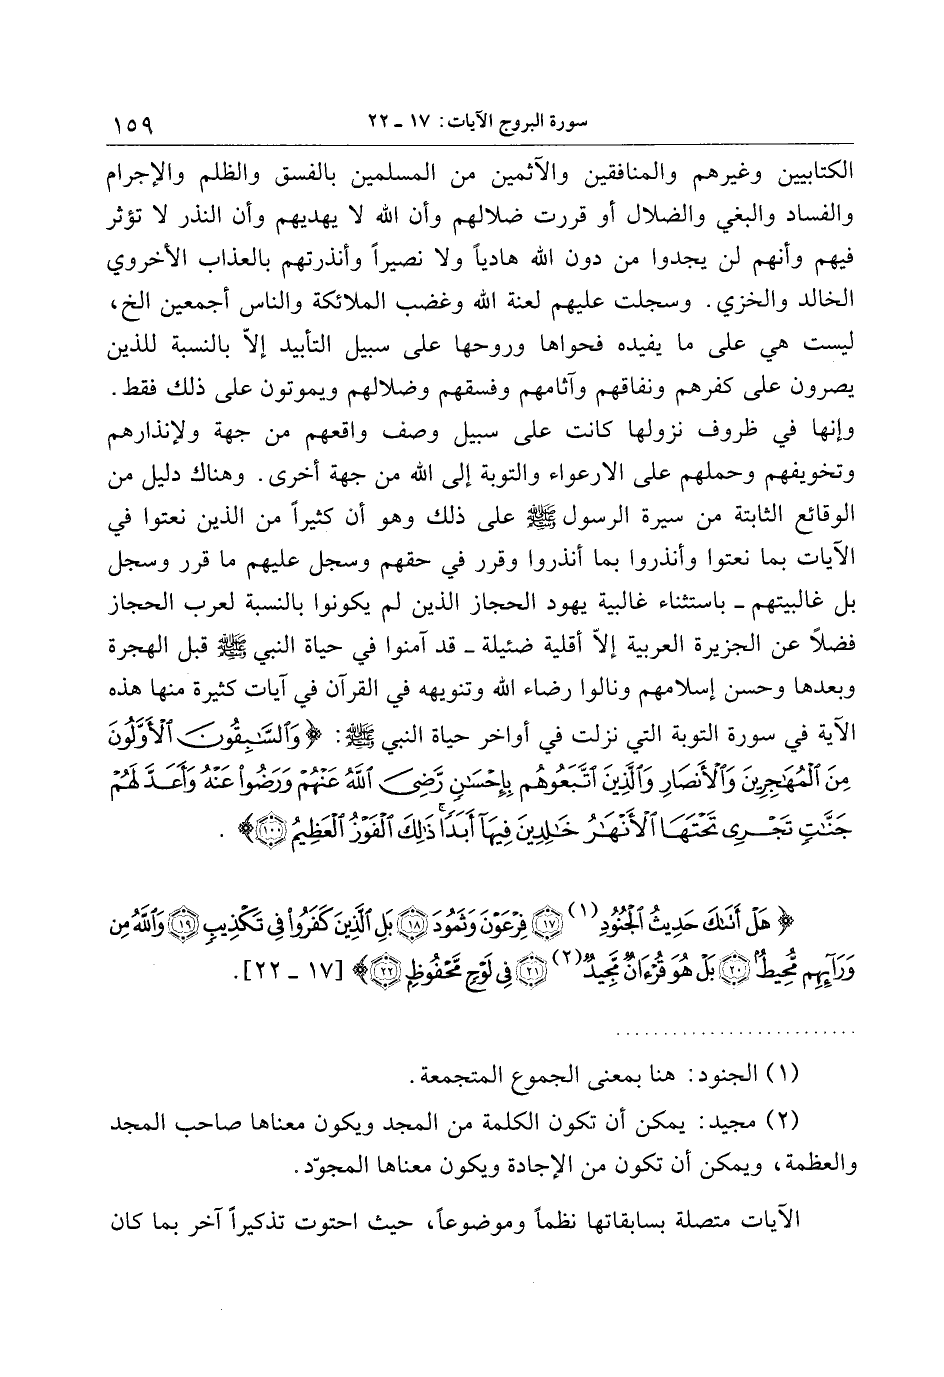 سورة البروج الآيات: ١٧ ـ ٢٢ ١٥٩
الكتابيين وغيرهم والمنافقين والآثمين من المسلمين بالفسق والظلم والإجرام
والفساد والبغي والضلال أو قررت ضلالهم وأن الله لا يهديهم وأن النذر لا تؤثر
فيهم وأنهم لن يجدوا من دون الله هادياً ولا نصيراً وأنذرتهم بالعذاب الأخروي
الخالد والخزي. وسجلت عليهم لعنة الله وغضب الملائكة والناس أجمعين الخ،
ليست هي على ما يفيده فحواها وروحها على سبيل التأبيد إلاّ بالنسبة للذين
يصرون على كفرهم ونفاقهم وآثامهم وفسقهم وضلالهم ويموتون على ذلك فقط.
وإنها في ظروف نزولها كانت على سبيل وصف واقعهم من جهة ولإنذارهم
وتخويفهم وحملهم على الارعواء والتوبة إلى الله من جهة أخرى. وهناك دليل من
الوقائع الثابتة من سيرة الرسول ﷺ على ذلك وهو أن كثيراً من الذين نعتوا في
الآيات بما نعتوا وأنذروا بما أنذروا وقرر في حقهم وسجل عليهم ما قرر وسجل
بل غالبيتهم ـ باستثناء غالبية يهود الحجاز الذين لم يكونوا بالنسبة لعرب الحجاز
فضلاً عن الجزيرة العربية إلاّ أقلية ضئيلة ـ قد آمنوا في حياة النبي ﷺ قبل الهجرة
وبعدها وحسن إسلامهم ونالوا رضاء الله وتنويهه في القرآن في آيات كثيرة منها هذه
الآية في سورة التوبة التي نزلت في أواخر حياة النبي ﷺ: ﴿وَٱلسَّٰبِقُونَ ٱلْأَوَّلُونَ
مِنَ ٱلْمُهَٰجِرِينَ وَٱلْأَنصَارِ وَٱلَّذِينَ ٱتَّبَعُوهُم بِإِحْسَٰنٍ رَّضِيَ ٱللَّهُ عَنْهُمْ وَرَضُوا۟ عَنْهُ وَأَعَدَّ لَهُمْ
جَنَّٰتٍ تَجْرِى تَحْتَهَا ٱلْأَنْهَٰرُ خَٰلِدِينَ فِيهَآ أَبَدًا ۚ ذَٰلِكَ ٱلْفَوْزُ ٱلْعَظِيمُ ١٠٠﴾.
﴿هَلْ أَتَىٰكَ حَدِيثُ ٱلْجُنُودِ (١) ١٧ فِرْعَوْنَ وَثَمُودَ ١٨ بَلِ ٱلَّذِينَ كَفَرُوا۟ فِى تَكْذِيبٍ ١٩ وَٱللَّهُ مِن
وَرَآئِهِم مُّحِيطٌۢ ٢٠ بَلْ هُوَ قُرْءَانٌ مَّجِيدٌ (٢) ٢١ فِى لَوْحٍ مَّحْفُوظٍۭ ٢٢﴾ [١٧ ـ ٢٢].
(١) الجنود: هنا بمعنى الجموع المتجمعة.
(٢) مجيد: يمكن أن تكون الكلمة من المجد ويكون معناها صاحب المجد
والعظمة، ويمكن أن تكون من الإجادة ويكون معناها المجوّد.
الآيات متصلة بسابقاتها نظماً وموضوعاً، حيث احتوت تذكيراً آخر بما كان